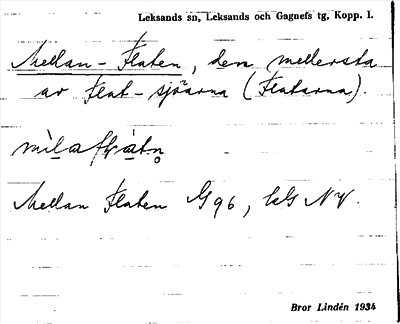 Leksands sn, Leksands och Gagnefs tg, Kopp. l.
Mellan-Flaten, den mellersta
av Flat-sjöarna (Flatarna).
Mellan Flaten G96, kG NV.
Bror Lindén 1934